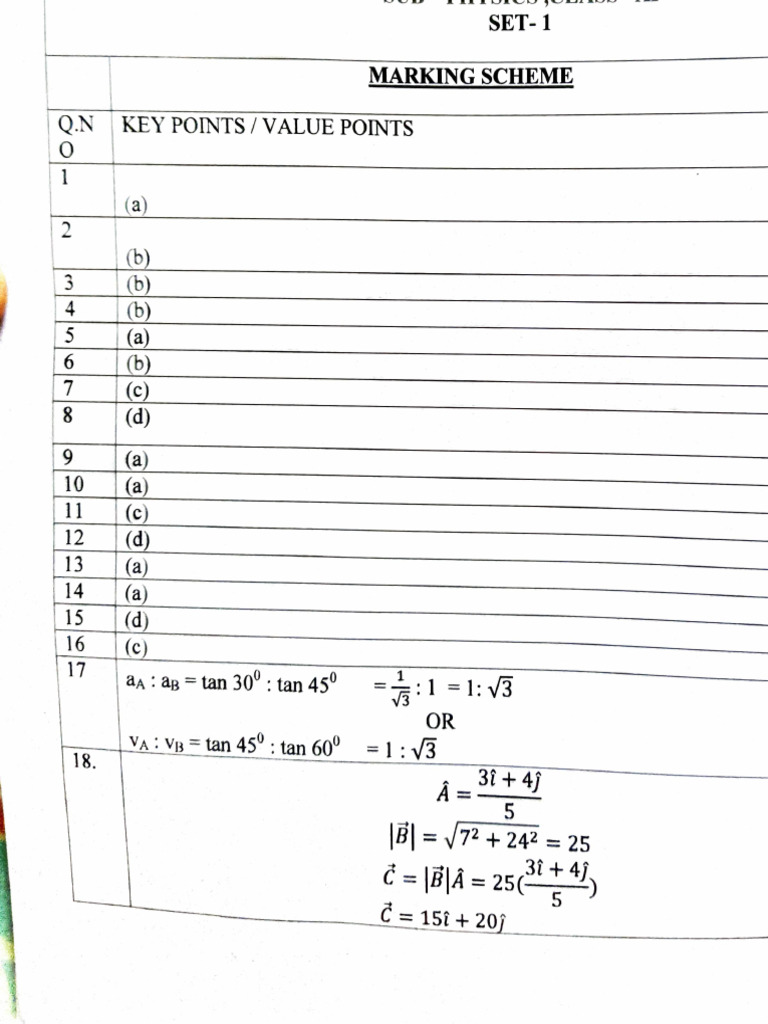 SET- 1
MARKING SCHEME
Q.N
O
KEY POINTS / VALUE POINTS
1
(a)
2
(b)
3 (b)
4 (b)
5 (a)
6 (b)
7 (c)
8 (d)
9 (a)
10 (a)
11 (c)
12 (d)
13 (a)
14 (a)
15 (d)
16 (c)
17 a_A : a_B = tan 30⁰ : tan 45⁰ = 1/√3 : 1 = 1: √3
OR
v_A : v_B = tan 45⁰ : tan 60⁰ = 1 : √3
18.
Â = (3î + 4ĵ)/5
|B⃗| = √(7² + 24²) = 25
C⃗ = |B⃗|Â = 25((3î + 4ĵ)/5)
C⃗ = 15î + 20ĵ